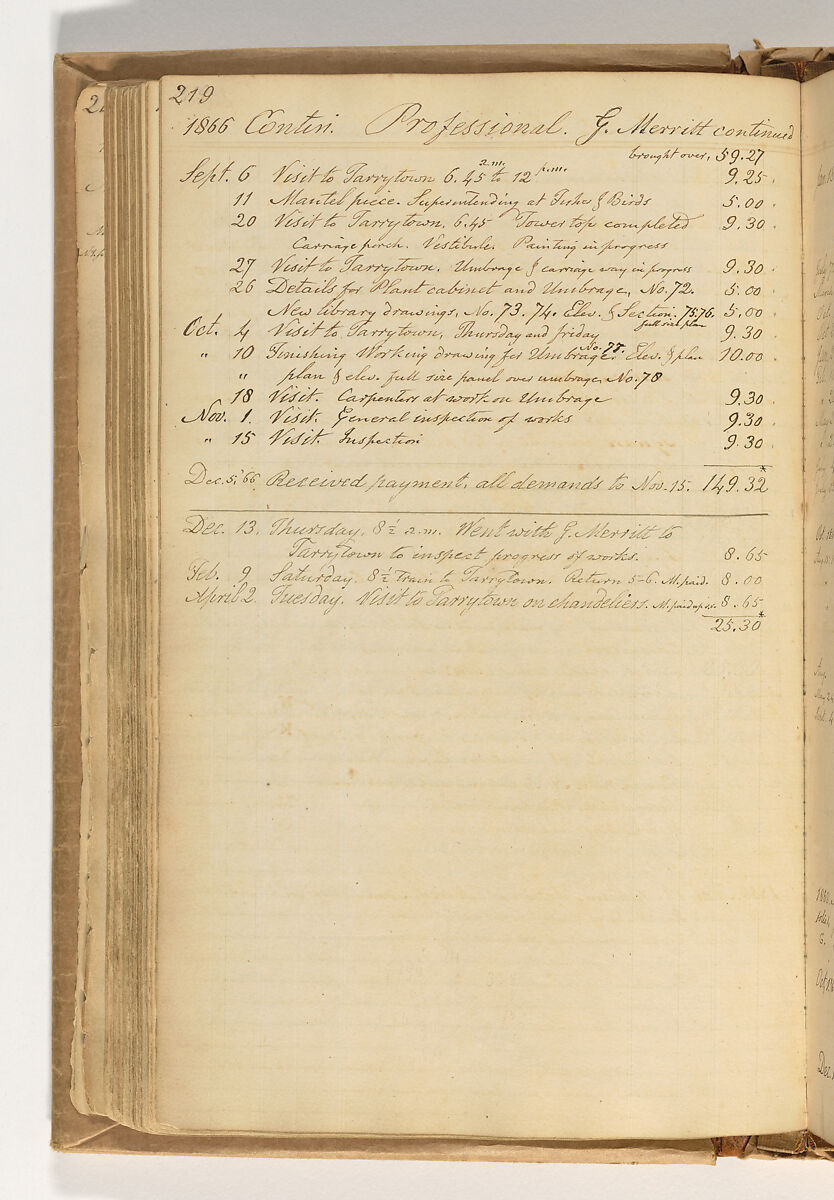 219
1866 Contin. Professional. G. Merritt continued
brought over, 59.27
Sept. 6 Visit to Tarrytown 6.45 a.m. to 12 p.m. 9.25
11 Mantel piece. Superintending at Fisher & Birds 5.00
20 Visit to Tarrytown. 6.45 Tower top completed 9.30
Carriage porch. Vestibule. Painting in progress
27 Visit to Tarrytown. Umbrage & carriage way in progress 9.30
26 Details for Plant cabinet and Umbrage, No. 72. 5.00
New library drawings, No. 73. 74. Elev. & Section. 75.76. 5.00
full size plan
Oct. 4 Visit to Tarrytown, Thursday and friday 9.30
" 10 Finishing Working drawing for Umbrage No. 77. Elev. & plan 10.00
" plan & elev. full size panel over umbrage, No. 78
18 Visit. Carpenters at work on Umbrage 9.30
Nov. 1. Visit. General inspection of works 9.30
" 15 Visit. Inspection 9.30
Dec. 5, '66 Received payment, all demands to Nov. 15. 149.32*
Dec. 13. Thursday, 8½ a.m. Went with G. Merritt to
Tarrytown to inspect progress of works. 8.65
Feb. 9 Saturday. 8½ Train to Tarrytown. Return 5-6. M. paid. 8.00
April 2 Tuesday. Visit to Tarrytown on chandeliers. M. paid 8.65
25.30*